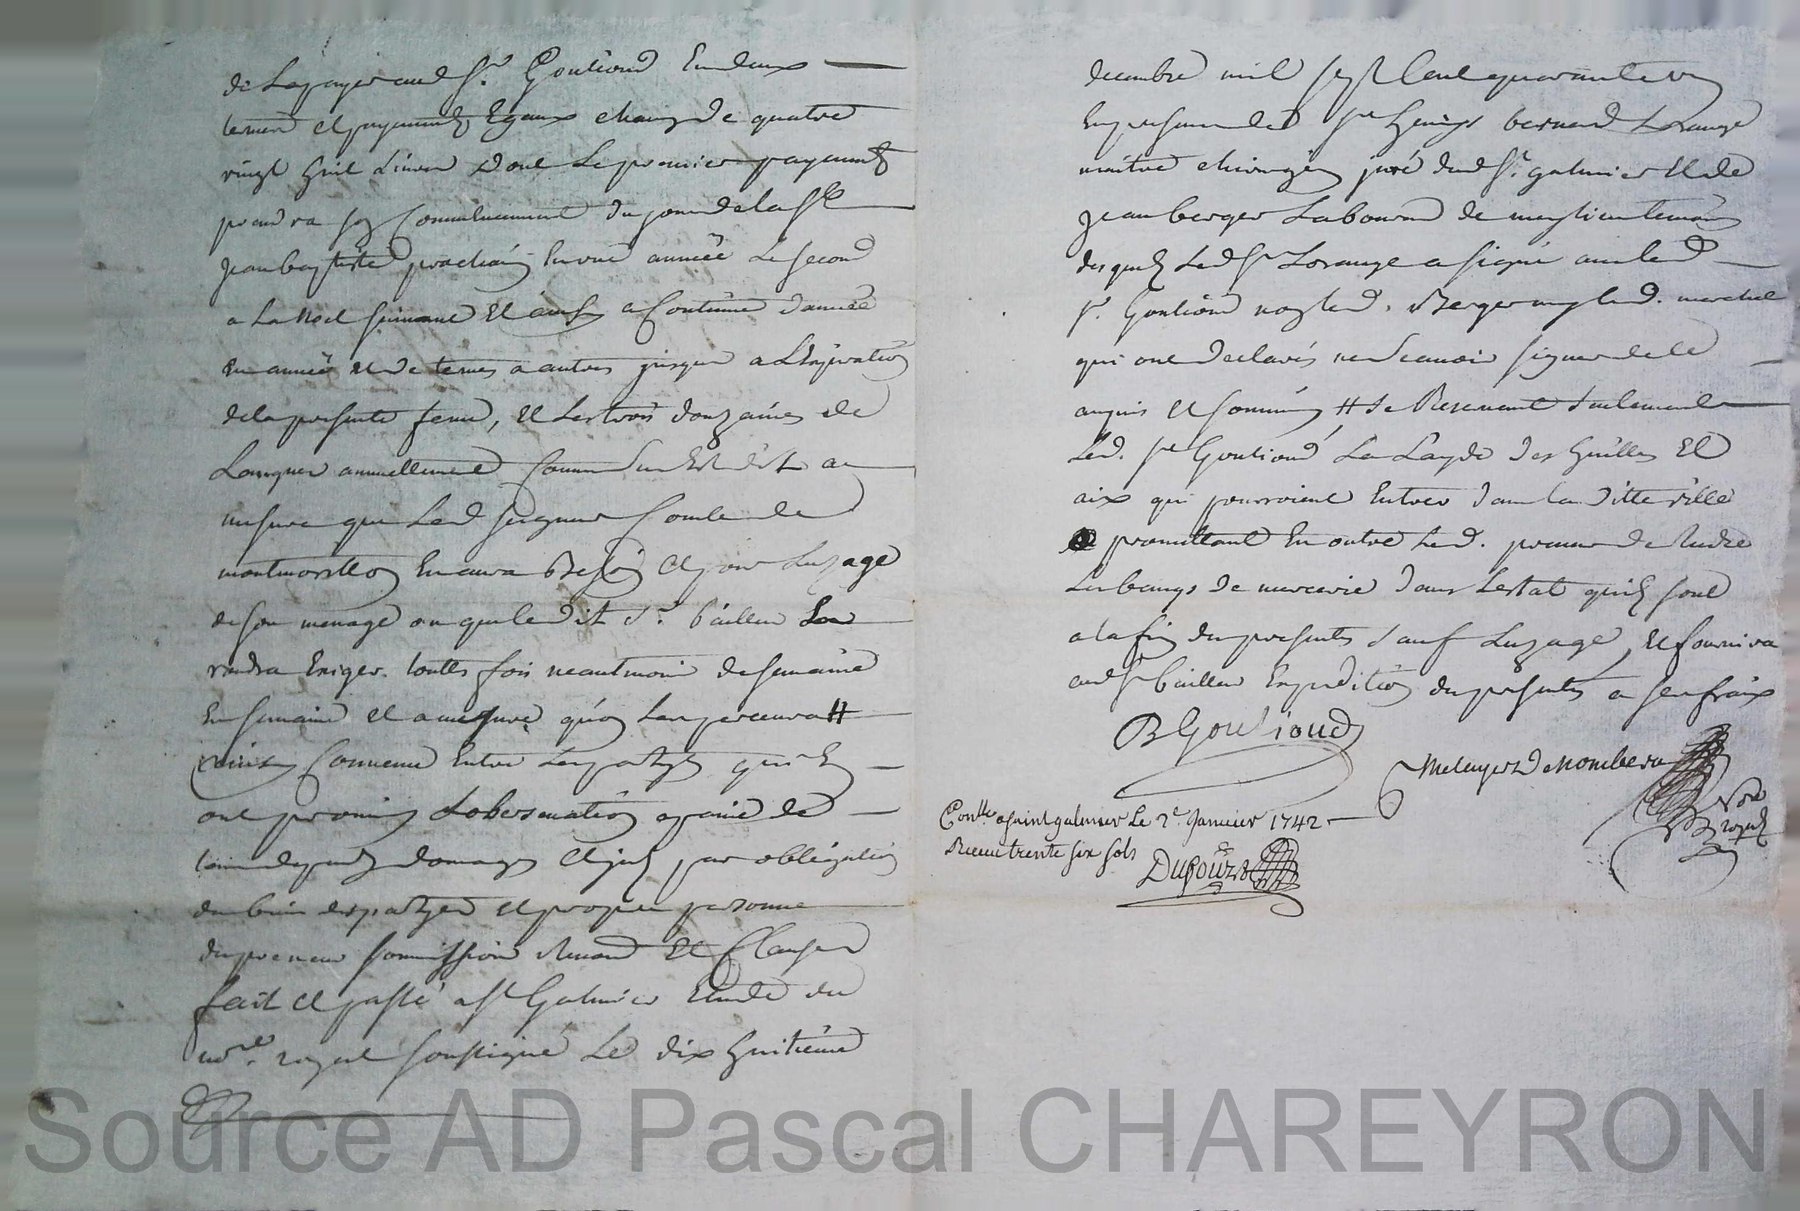 de La payer aud Sr. Goutioud En deux
termes et payements Egaux chacung de quatre
vingt huit Livres dont Le premier payement
prendra son Commencement du jour de la St
Jean baptiste prochain En une année Le second
a La noel suivant Et ainsy a Continue d'année
En année et de termes a autres jusques a L'Expiration
de la presente ferme, Et Les trois douzaines de
Langues annuellement Comme Sus Est dit a
mesure que Led seigneur Comte de
montmorillon En aura Besoin Et pour Luzage
de son menage ou que le dit Sr. bailleur Les
vendra Exiger. touttes fois neantmoins de semaine
En semaine Et a mesure qu'on Les percevra #
Convenu Entre Les partyes qui En
ont promis Lobservation a peine de
tous depends domages Et jnt par obligation
des biens des partyes et propre personne
du preneur soumission Renond Et Clauses
fait et passé a St Galmier Etude du
nore. royal soussigné Le dix huitieme
decembre mil sept Cent quarante un
En presence de Sr bernard Lorange
maitre chirurgien juré dud St. galmier Et de
Jean berger Laboureur de temoins
desquels Led Sr Lorange a signé avec led
Sr. Goutioud non led. Berger ny led.
qui ont declarés ne Scavoir signer de ce
enquis et sommés # Se Reservant Seulement
Led. Sr Goutioud La Layde des huilles Et
aix qui pourroient Entrer dans la ditte ville
promettant En outre Led. preneur de Rendre
Les bancs de mercerie dans Lestat quils sont
a la fin des presentes sauf Luzage, et fournira
aud Sr bailleur Expedition des presentes a ses fraix
B Goutioud
Nore
royal
Conlle a saint galmier Le 2e Janvier 1742
Receu trente six sols
Source AD Pascal CHAREYRON